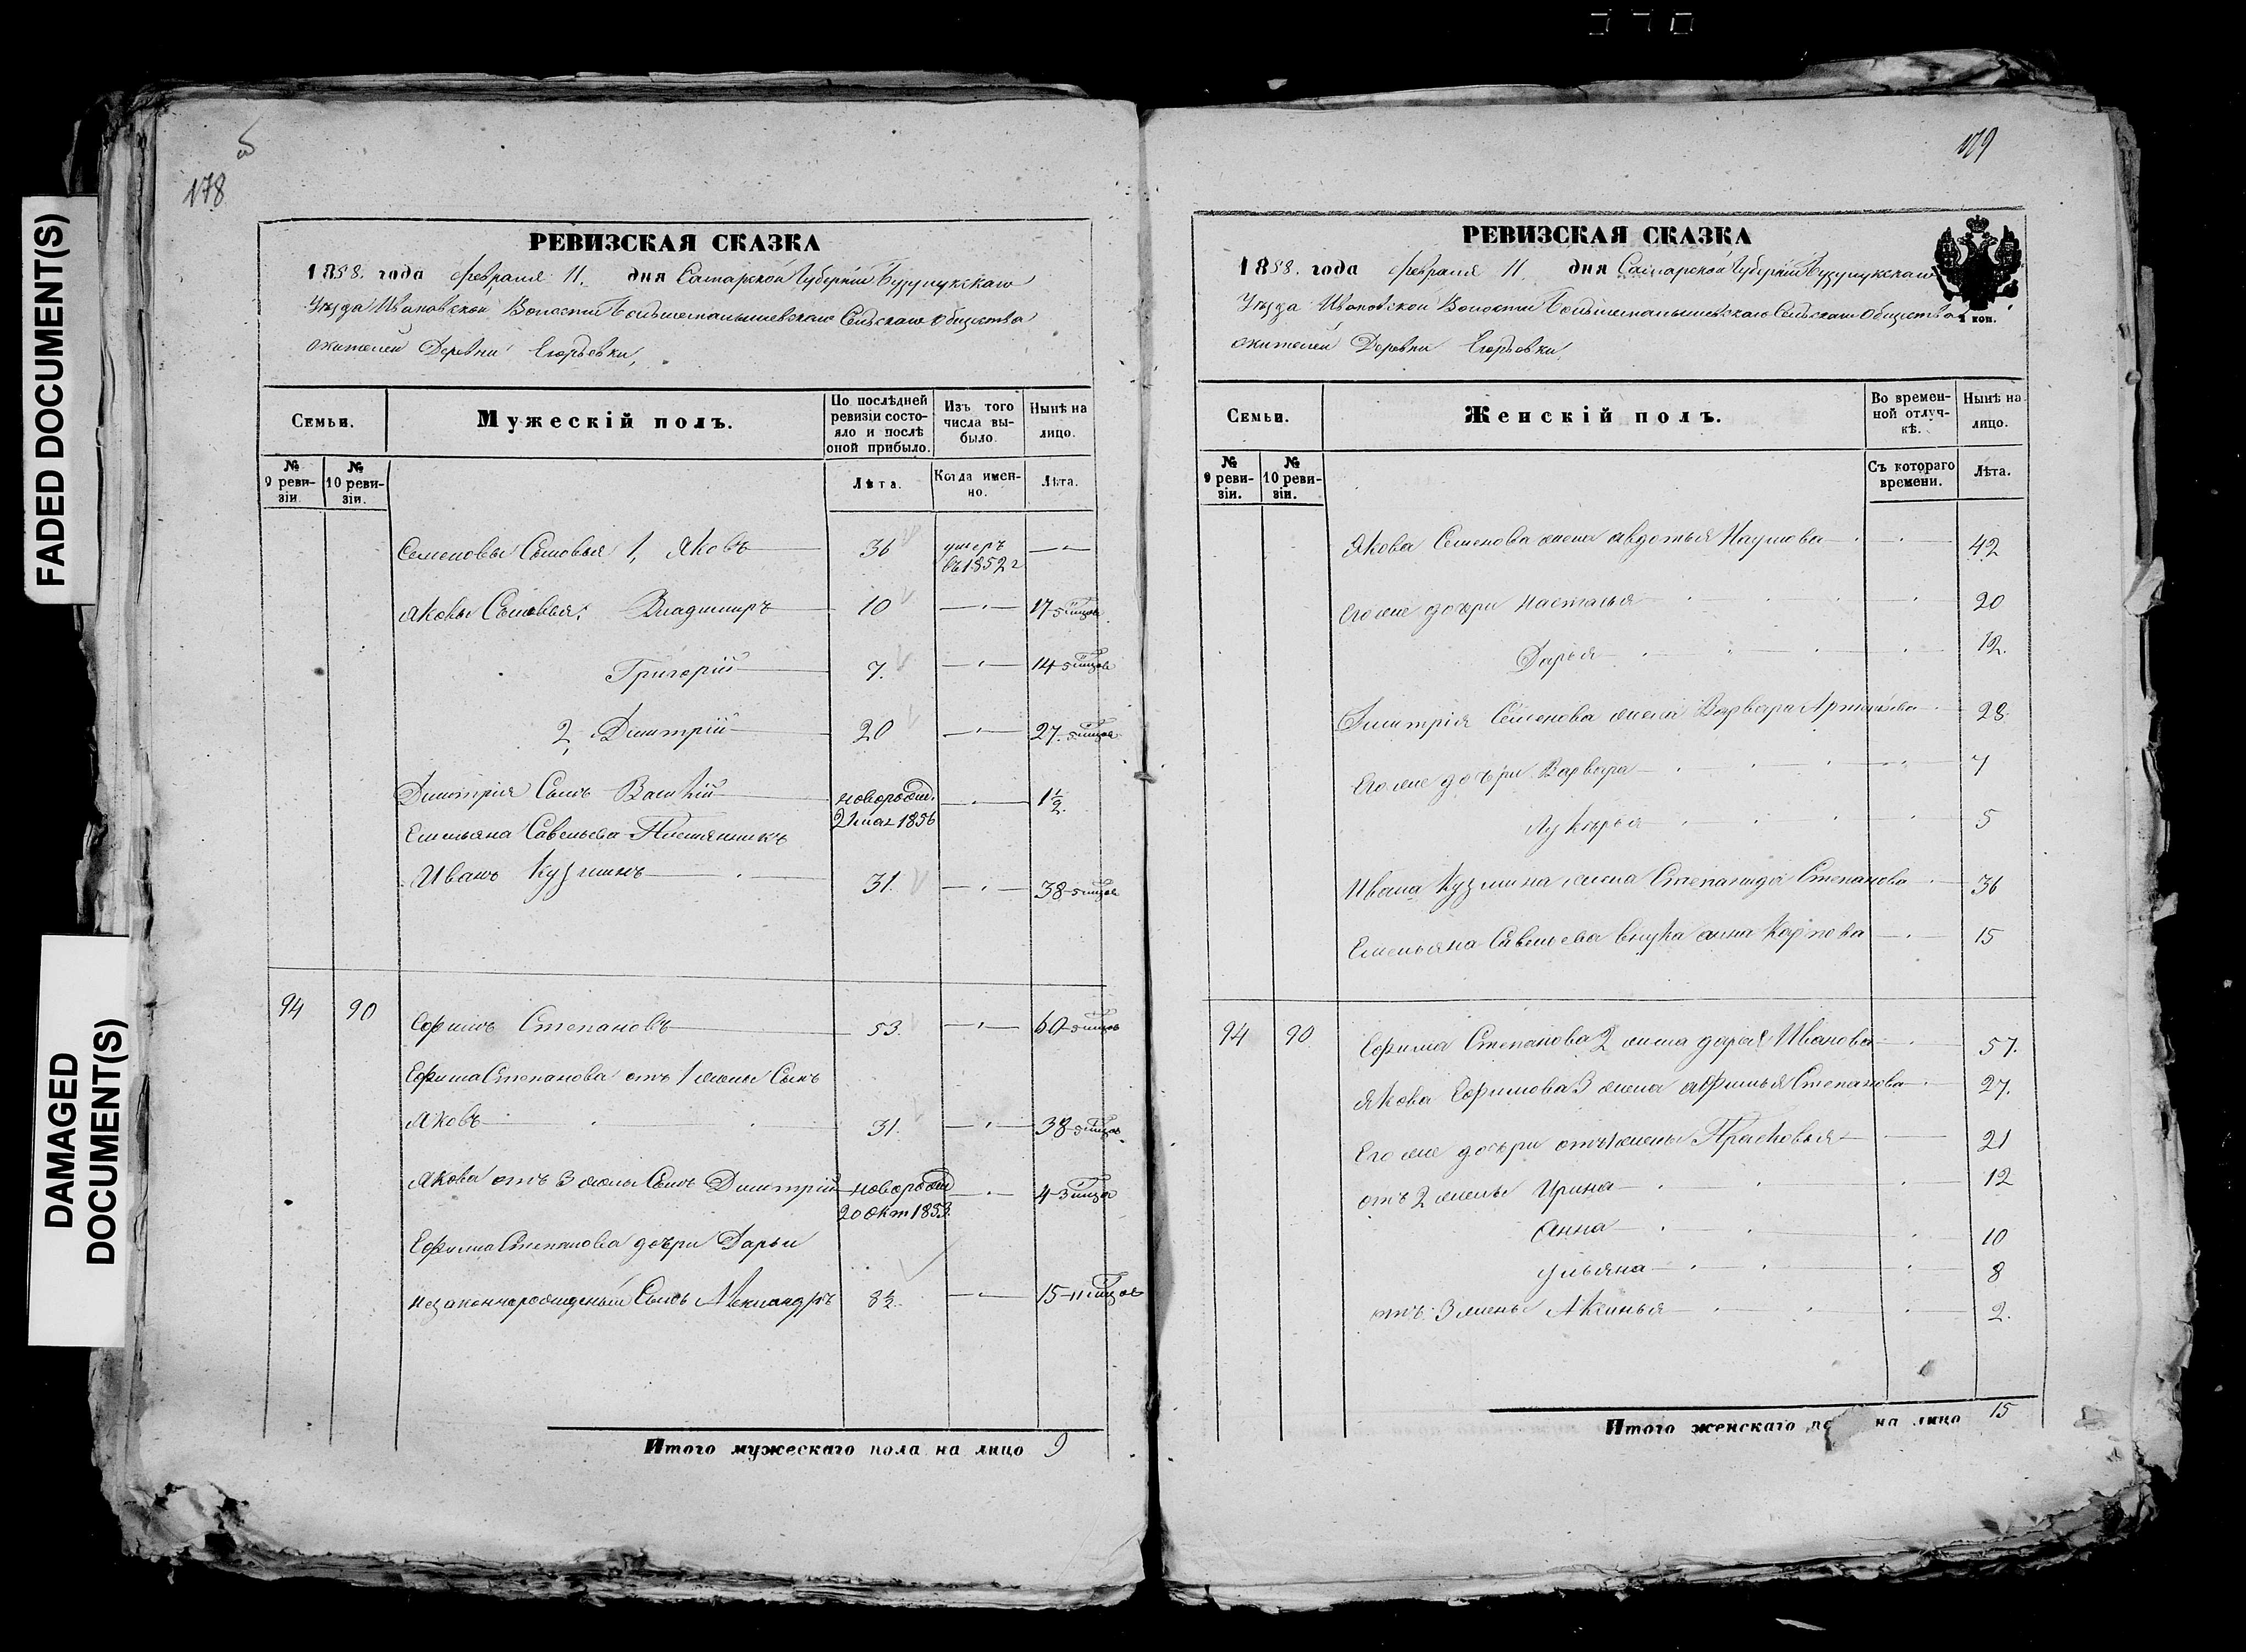 FADED DOCUMENT(S)
DAMAGED
DOCUMENT(S)
178
РЕВИЗСКАЯ СКАЗКА
1858. года февраля 11. дня Самарской Губерніи Бузулукскаго
Уезда Ивановской Волости Сельскаго Общества
жителей Деревни Егорьевки,
Семьи. Мужескій полъ. По послѣдней ревизіи состояло и послѣ оной прибыло. Изъ того числа выбыло. Нынѣ на лицо.
№ 9 ревизіи. № 10 ревизіи. Лѣта. Когда именно. Лѣта.
Семеновы Сыновья 1, Яковъ 36 умеръ въ 1852 г
Яковы Сыновья: Владимиръ 10 17
Григорій 7. 14
2, Димитрій 20 27
Димитрія Сынъ Василій новорожд. 21 мая 1856 1½
Емельяна Савельева Племянникъ
Иванъ Кузминъ 31. 38
94 90 Ефимъ Степановъ 53. 60
Ефима Степанова отъ 1 жены Сынъ
Яковъ 31. 38
Якова отъ 3 жены Сынъ Димитрій новорожд 20 окт 1853. 4
Ефима Степанова дочери Дарьи
незаконнорожденый Сынъ Александръ 8½. 15
Итого мужескаго пола на лицо 9
179
РЕВИЗСКАЯ СКАЗКА
1858. года февраля 11 дня Самарской Губерніи Бузулукскаго
Уезда Ивановской Волости Сельскаго Общества
коп.
жителей Деревни Егорьевки,
Семьи. Женскій полъ. Во временной отлучкѣ. Нынѣ на лицо.
№ 9 ревизіи. № 10 ревизіи. Съ котораго времени. Лѣта.
Якова Семенова жена Авдотья Наумова 42
Его же дочери Насталья 20
Дарья 12.
Димитрія Семенова жена Варвара 28
Его же дочери Варвара 7
Лукерья 5
Ивана Кузмина жена Степанида Степанова 36
Емельяна Савельева внука анна Карпова 15
94 90 Ефима Степанова 2 жена дарья Иванова 57.
Якова Ефимова 3 жена Афимья Степанова 27.
Его же дочери отъ 1 жены Прасковья 21
отъ 2 жены Ирина 12
Анна 10
Ульяна 8
отъ 3 жены Аксинья 2.
Итого женскаго на лицо 15